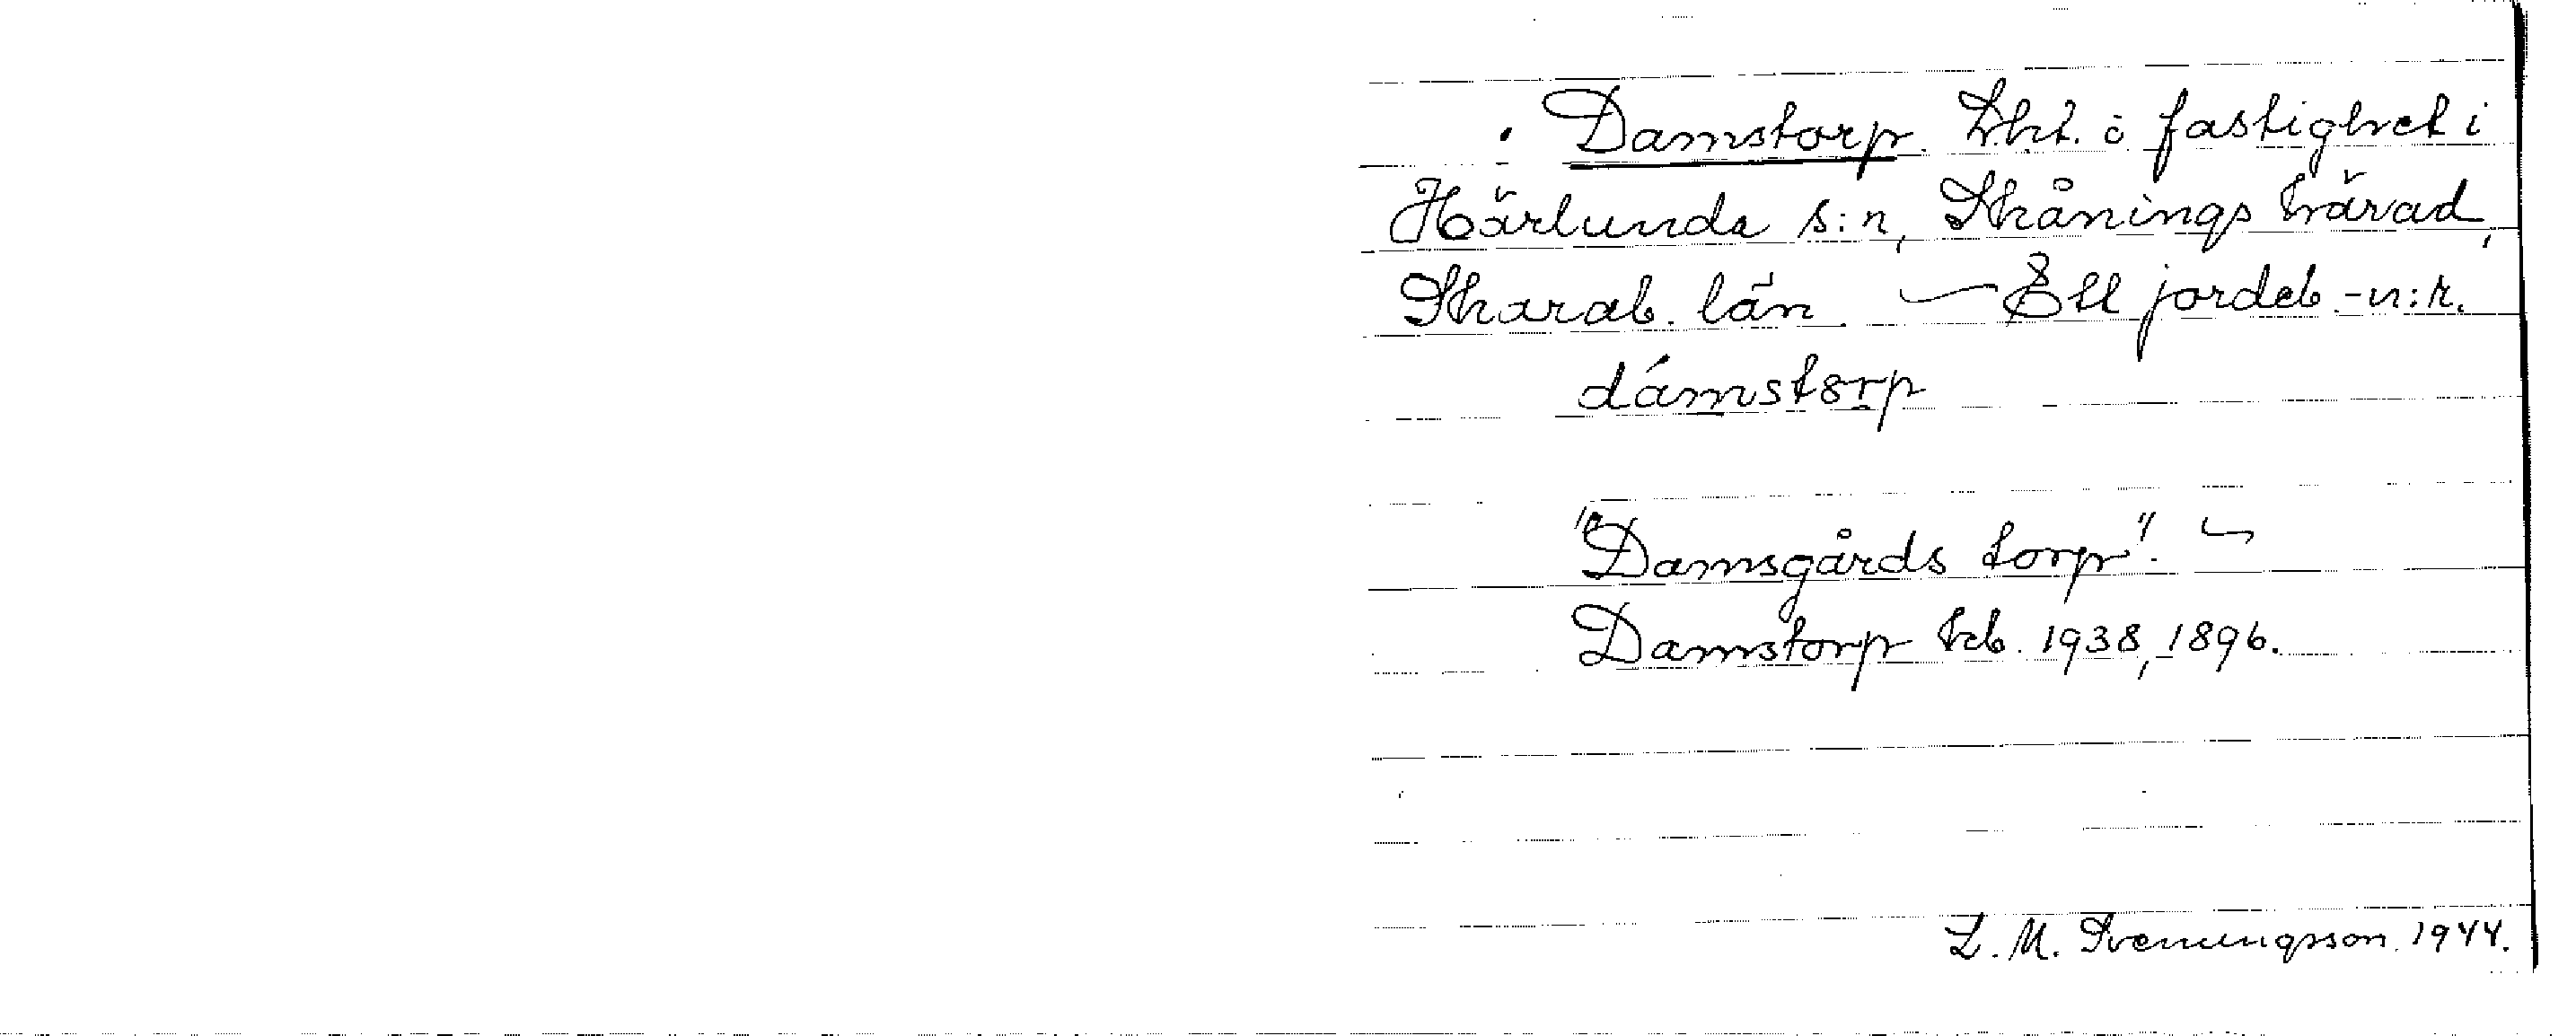 Damstorp. Lht. o fastighet i
Härlunda s:n, Skånings härad,
Skarab. län. — Ett jordeb.-n:r.
dámstorp
"Damsgårds torp".
Damstorp kb. 1938, 1896.
L. M. Svenungsson. 1944.